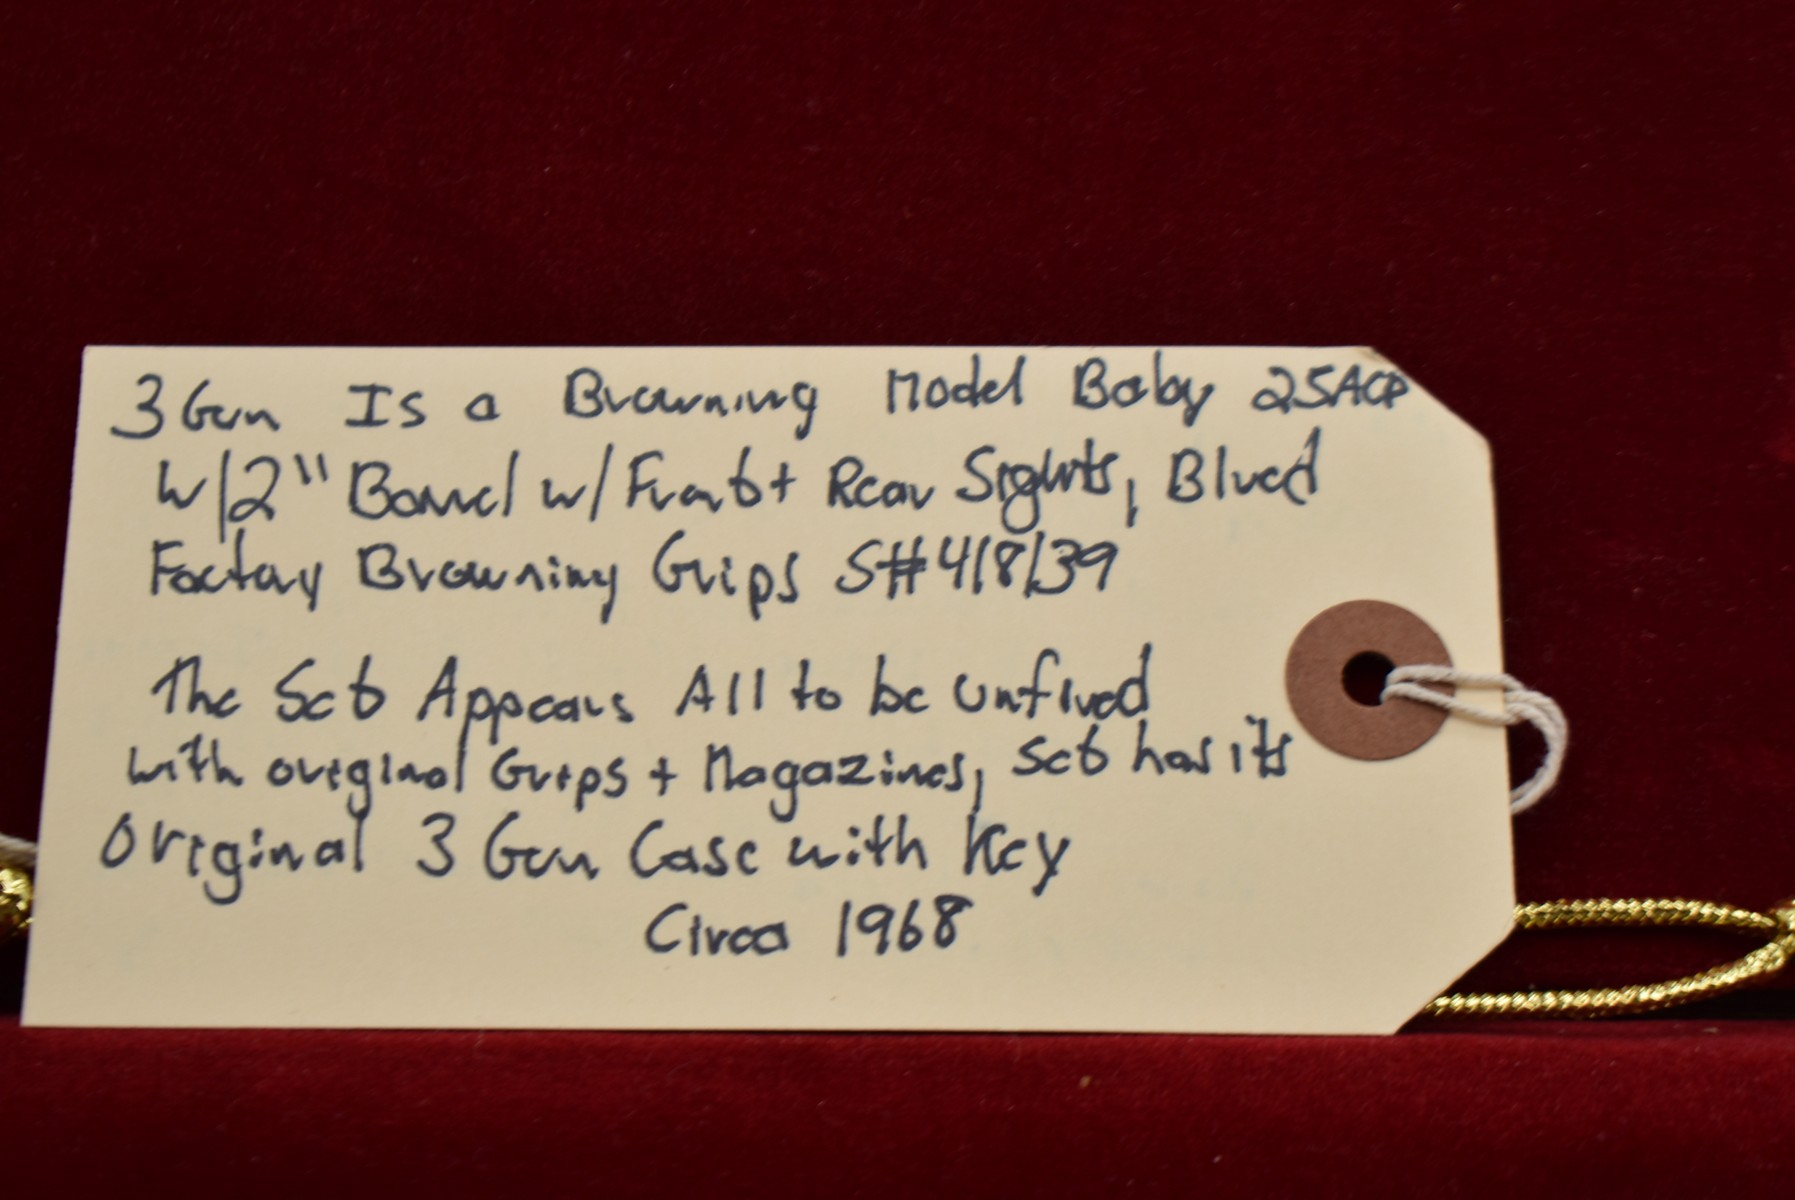 3 Gun Is a Browning Model Baby 25ACP
W/2" Barrel w/ Front + Rear Sights, Blued
Factory Browning Grips S#418139
The Set Appears All to be unfired
with original Grips + Magazines, Set has its
Original 3 Gun Case with Key
Circa 1968